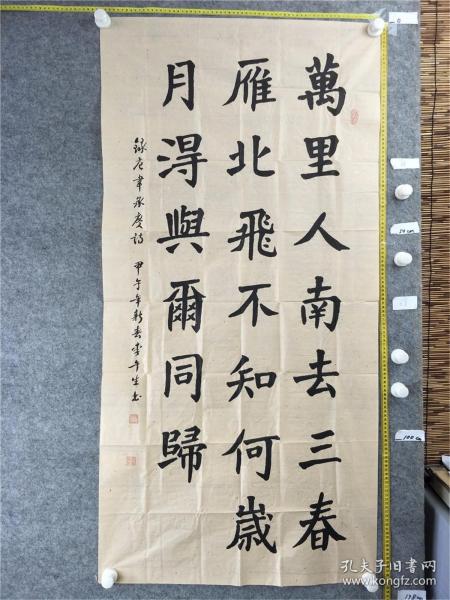 萬里人南去三春
雁北飛不知何歲
月淂與爾同歸
録唐韋承慶詩 甲午年新春
孔夫子旧书网
www.kongfz.com